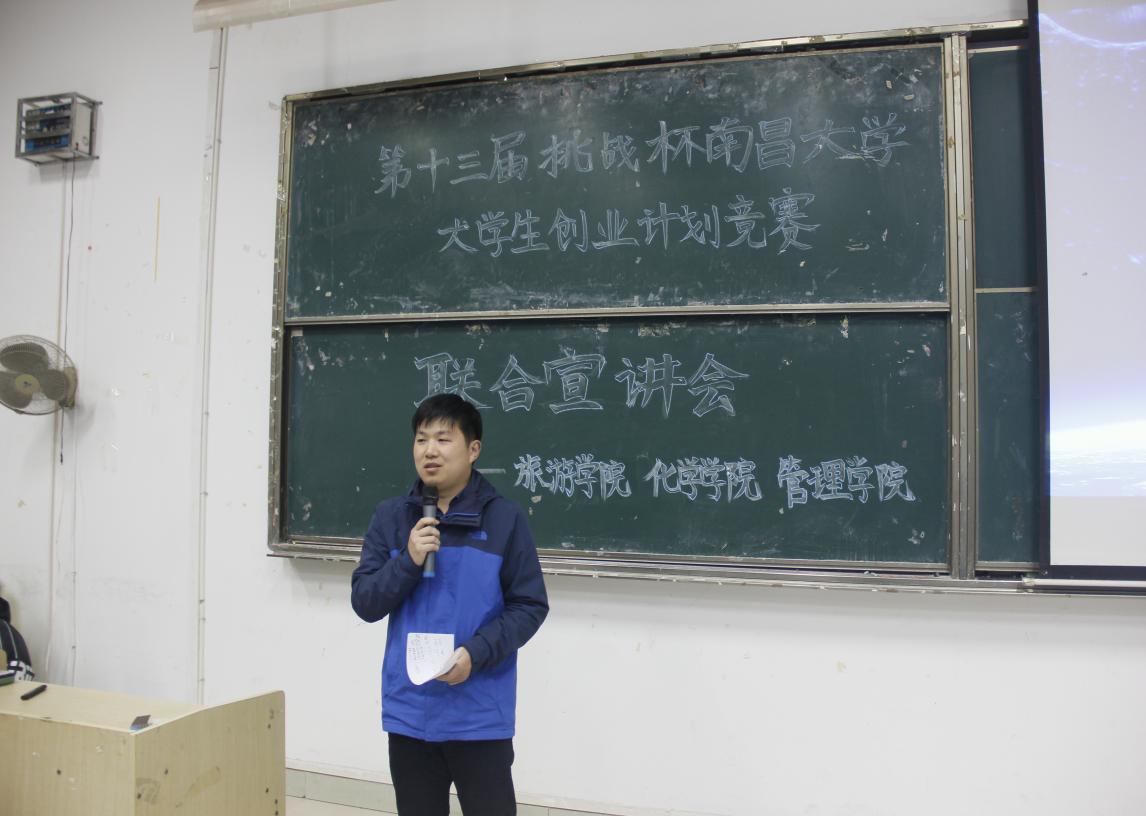 第十三届挑战杯南昌大学
大学生创业计划竞赛
联合宣讲会
—旅游学院 化学学院 管理学院